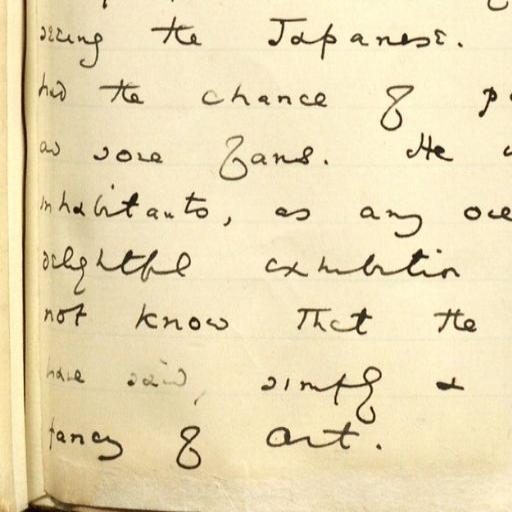 seeing the Japanese.
had the chance of
as some fans. He
inhabitants, as any one
delightful exhibition
not know that the
have said, simply a
fancy of art.